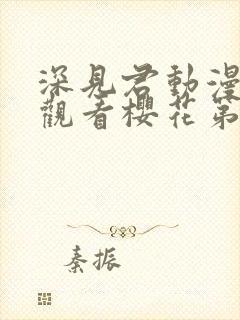 深見君動漫
觀看櫻花第
秦振